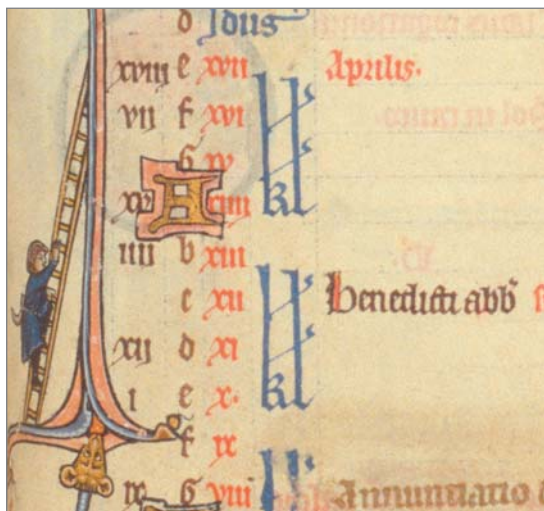 d Idus
xviii e xvii Aprilis.
vii f xvi
G xv
xv A xiiii kl
iiii b xiii
c xii Benedicti abb
xii d xi
i e x. kl
f ix
ix G viii Annunciatio